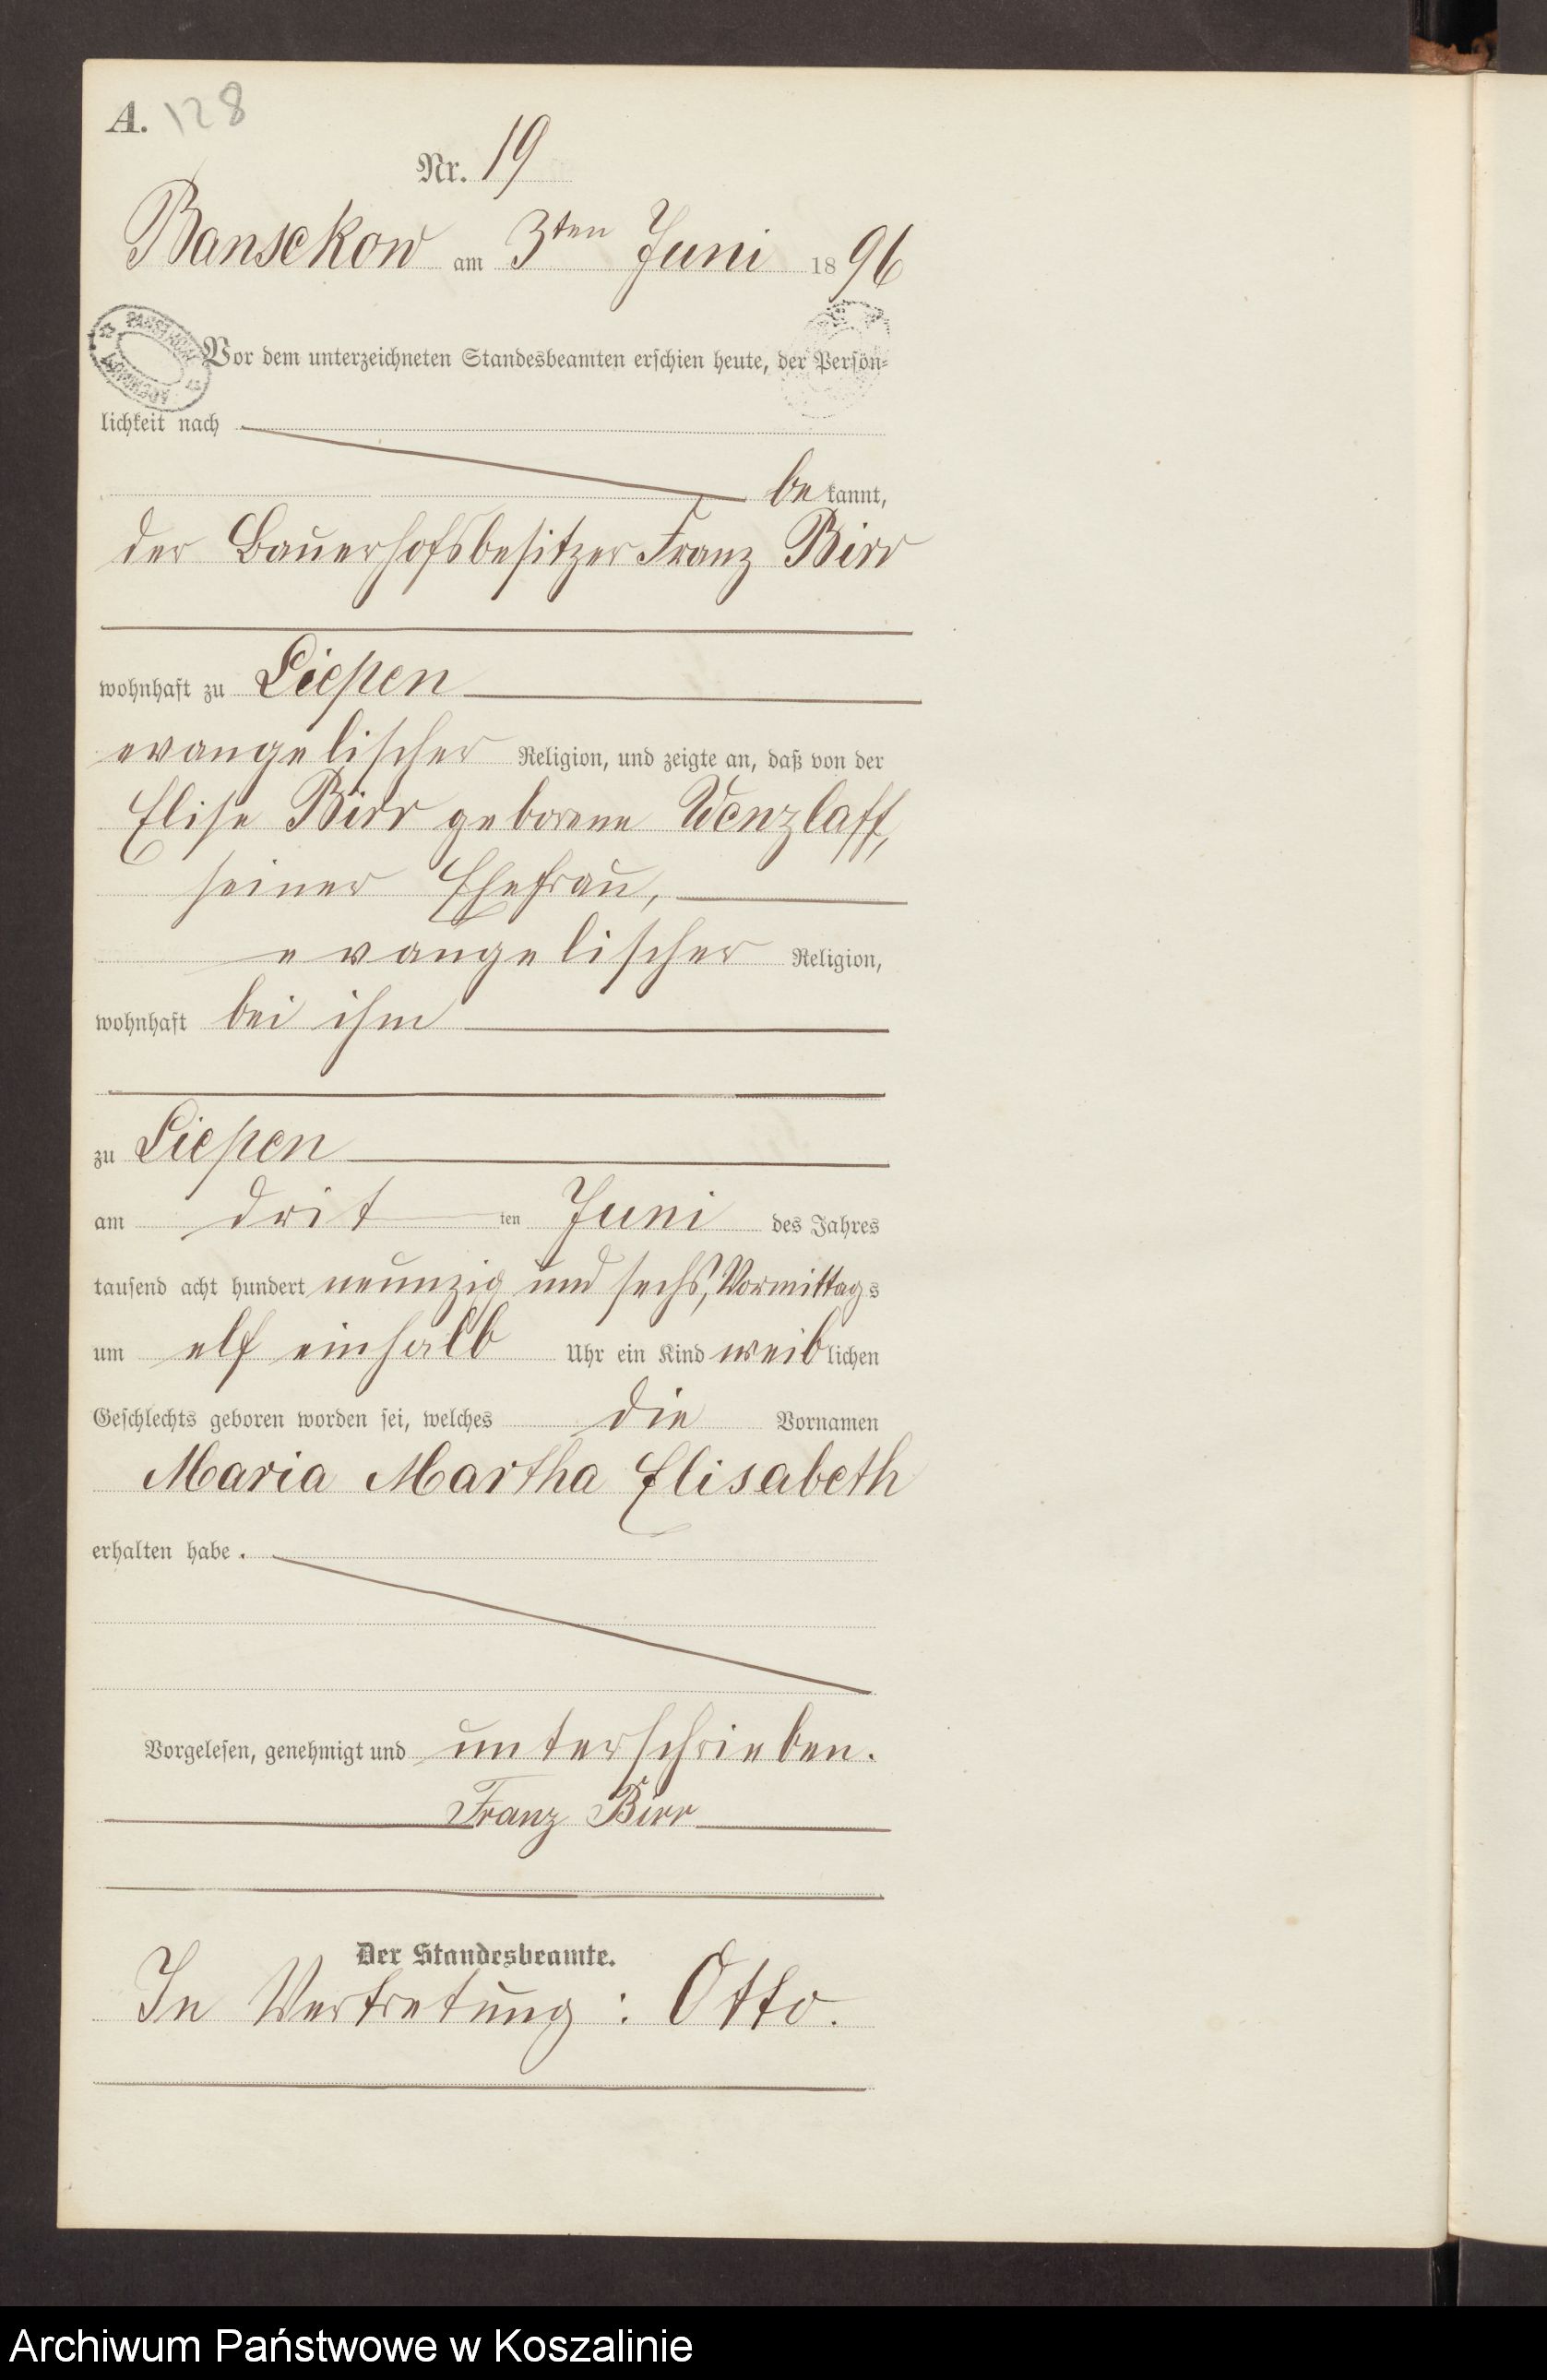 A. 128
Nr. 19
Bansekow am 3ten Juni 1896
Vor dem unterzeichneten Standesbeamten erschien heute, der Persön-
lichkeit nach
bekannt,
der Bauerhofsbesitzer Franz Birr
wohnhaft zu Liepen
evangelischer Religion, und zeigte an, daß von der
Elise Birr geborene Wenzlaff,
seiner Ehefrau,
evangelischer Religion,
wohnhaft bei ihm
zu Liepen
am drit ten Juni des Jahres
tausend acht hundert neunzig und sechs, Vormittags
um elf einhalb Uhr ein Kind weiblichen
Geschlechts geboren worden sei, welches die Vornamen
Maria Martha Elisabeth
erhalten habe.
Vorgelesen, genehmigt und unterschrieben.
Franz Birr
Der Standesbeamte.
In Vertretung: Otto.
Archiwum Państwowe w Koszalinie